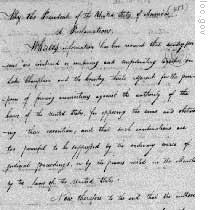 By the President of the United States of America (255)
A Proclamation.
Whereas information has been received that sundry per
sons are combined or combining and confederating together on
Lake Champlain and the country thereto adjacent for the pur
poses of forming insurrections against the authority of the
laws of the United States, for opposing the same and obstruct
ing their execution, and that such combinations are
too powerful to be suppressed by the ordinary course of
judicial proceedings, or by the powers vested in the Marshals
by the laws of the United States.
Now therefore to the end that the authority
loc.gov